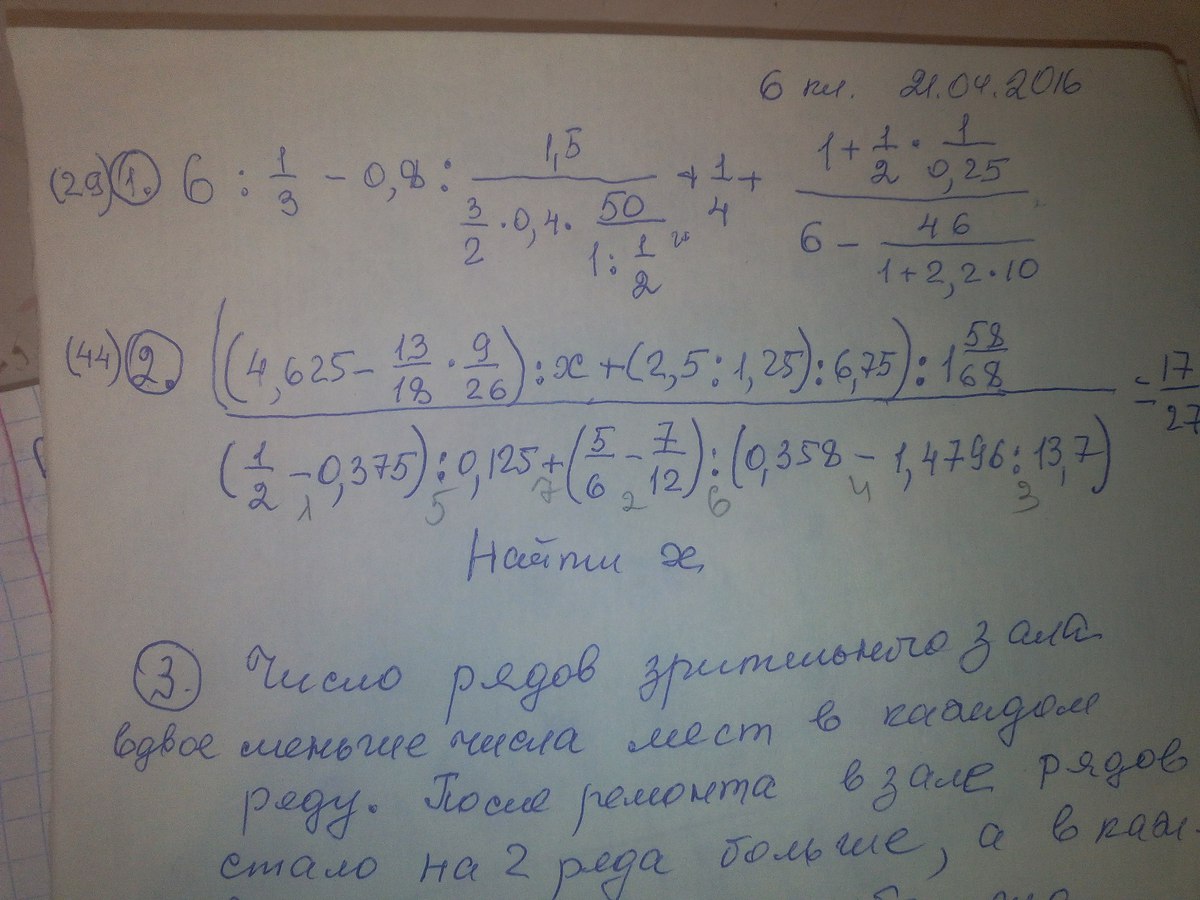 6 кл. 21.04.2016
(29) 1. 6 : 1/3 - 0,8 : 1,5 / (3/2 · 0,4 · 50 / (1 : 1/2)) + 1/4 + (1 + 1/2 · 1/0,25) / (6 - 46 / (1 + 2,2 · 10))
(44) 2. ((4,625 - 13/18 · 9/26) : x + (2,5 : 1,25) : 6,75) : 1 58/68 / ((1/2 - 0,375) : 0,125 + (5/6 - 7/12) : (0,358 - 1,4796 : 13,7)) = 17/27
1 5 7 2 6 4 3
Найти x
3. Число рядов зрительного зала
вдвое меньше числа мест в каждом
ряду. После ремонта в зале рядов
стало на 2 ряда больше, а в каж-